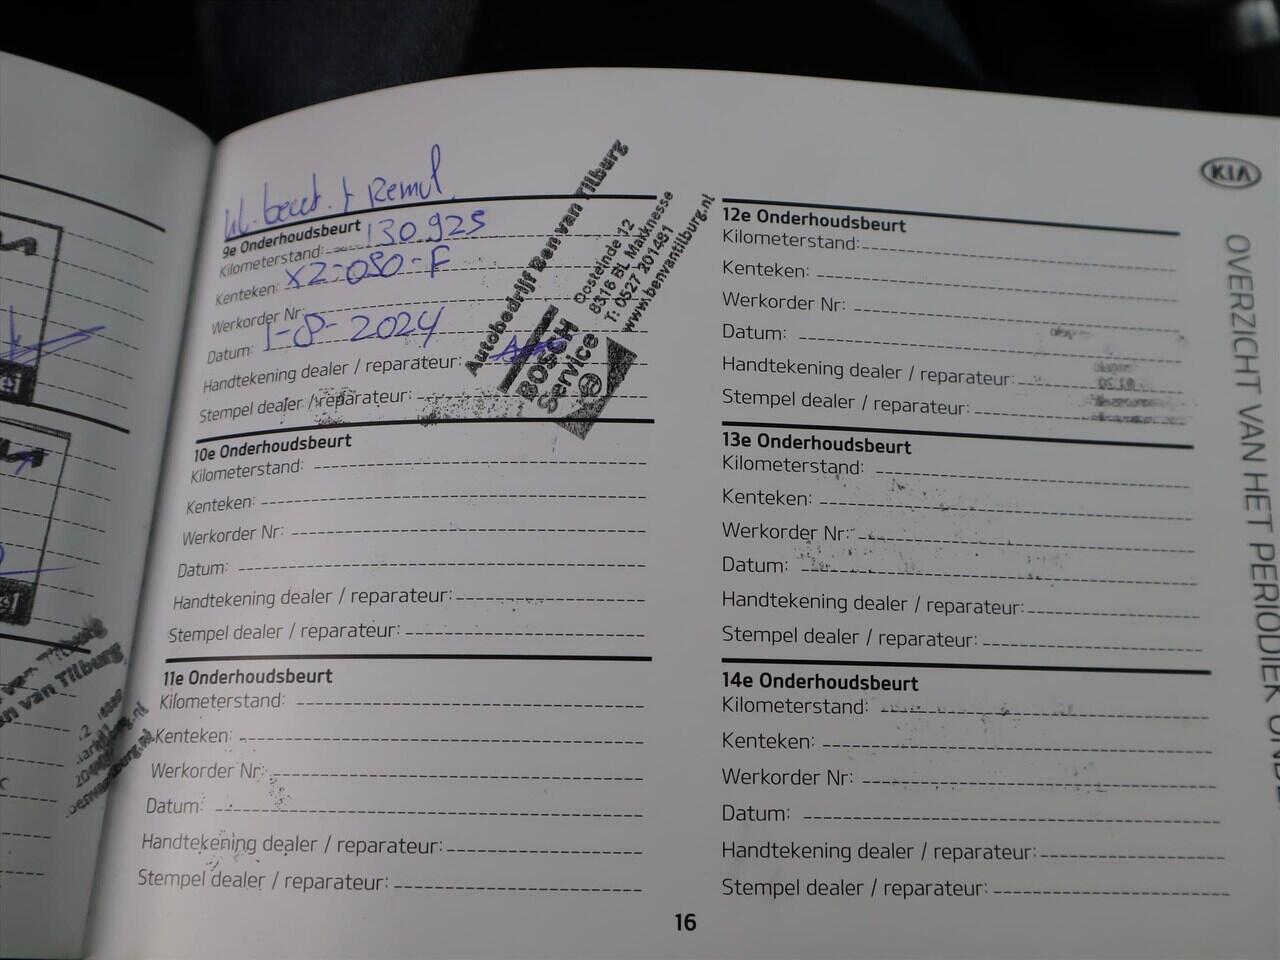 9e Onderhoudsbeurt
Kilometerstand: 130.925
Kenteken: XZ-080-F
Werkorder Nr:
Datum: 1-8-2024
Handtekening dealer / reparateur:
Stempel dealer / reparateur:
Autobedrijf Ben van Tilburg
Oosteinde 12
8316 BL Marknesse
T: 0527 201481
www.benvantilburg.nl
BOSCH
Service
10e Onderhoudsbeurt
Kilometerstand:
Kenteken:
Werkorder Nr:
Datum:
Handtekening dealer / reparateur:
Stempel dealer / reparateur:
11e Onderhoudsbeurt
Kilometerstand:
Kenteken:
Werkorder Nr:
Datum:
Handtekening dealer / reparateur:
Stempel dealer / reparateur:
12e Onderhoudsbeurt
Kilometerstand:
Kenteken:
Werkorder Nr:
Datum:
Handtekening dealer / reparateur:
Stempel dealer / reparateur:
13e Onderhoudsbeurt
Kilometerstand:
Kenteken:
Werkorder Nr:
Datum:
Handtekening dealer / reparateur:
Stempel dealer / reparateur:
14e Onderhoudsbeurt
Kilometerstand:
Kenteken:
Werkorder Nr:
Datum:
Handtekening dealer / reparateur:
Stempel dealer / reparateur:
KIA
OVERZICHT VAN HET PERIODIEK
16
van Tilburg